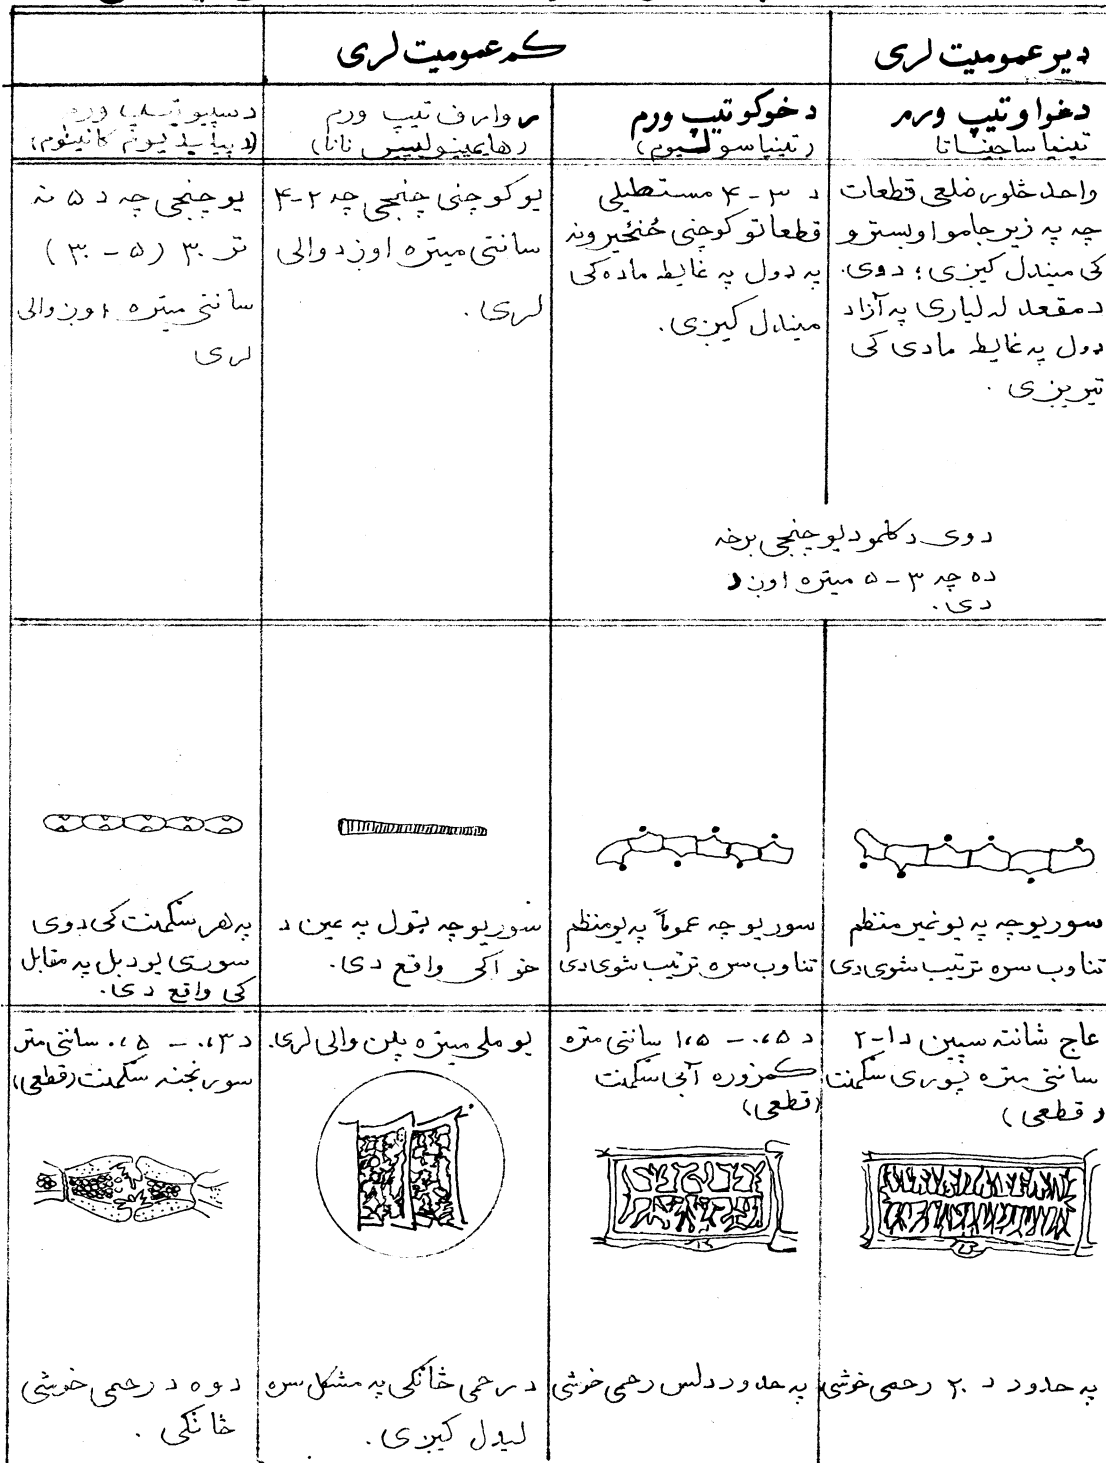 ډیر عمومیت لری
کم عمومیت لری
دغوا و تیپ ورم
تینیا ساجیناتا
د خوکو تیپ ورم
(تینیا سولیوم)
وارف تیپ ورم
(هایمینولیپس نانا)
د سپیو تیپ ورم
واحد څلور ضلعی قطعات
چه په زیر جامو او بسترو
کی میندل کیږی؛ دوی.
د مقعد له لیاری په آزاد
ډول په غایطه مادی کی
تیریږی.
د ۳ - ۴ مستطیلی
قطعاتو کوچنی ځنځیرونه
په ډول په غایطه ماده کی
میندل کیږی.
یو کوچنی چنجی چه ۲-۴
سانتی متره اوږد والی
لری.
یو چنجی چه د ۵ نه
تر ۳۰ (۵ - ۳۰)
سانتی متره اوږ والی
لری
دوی د کلمو د یو چنجی برخه
ده چه ۳ - ۵ میتره اوږد
دی.
سوریو چه په یو غیر منظم
تناوب سره ترتیب شوی دی
سوریو چه عموماً په یو منظم
تناوب سره ترتیب شوی دی
سوریو چه ټول په عین د
خوا کی واقع دی.
په هر سگمنت کی دوی
سوری یو د بل په مقابل
کی واقع دی.
عاج شانته سپین د ۱-۲
سانتی متره پوری سگمنت
(قطعی)
د ۰،۵ - ۱،۵ سانتی متره
کمزوره آبی سگمنت
(قطعی)
یو ملی میتره پلن والی لری.
د ۰،۳ - ۰،۵ سانتی متر
سور بخنه سگمنت (قطعی)
په حدود د ۲۰ رحمی خوشی
په حدود د لس رحمی خوشی
د رحمی څانکی په مشکل سره
لیدل کیږی.
دوه د رحمی خوشی
څانکی.